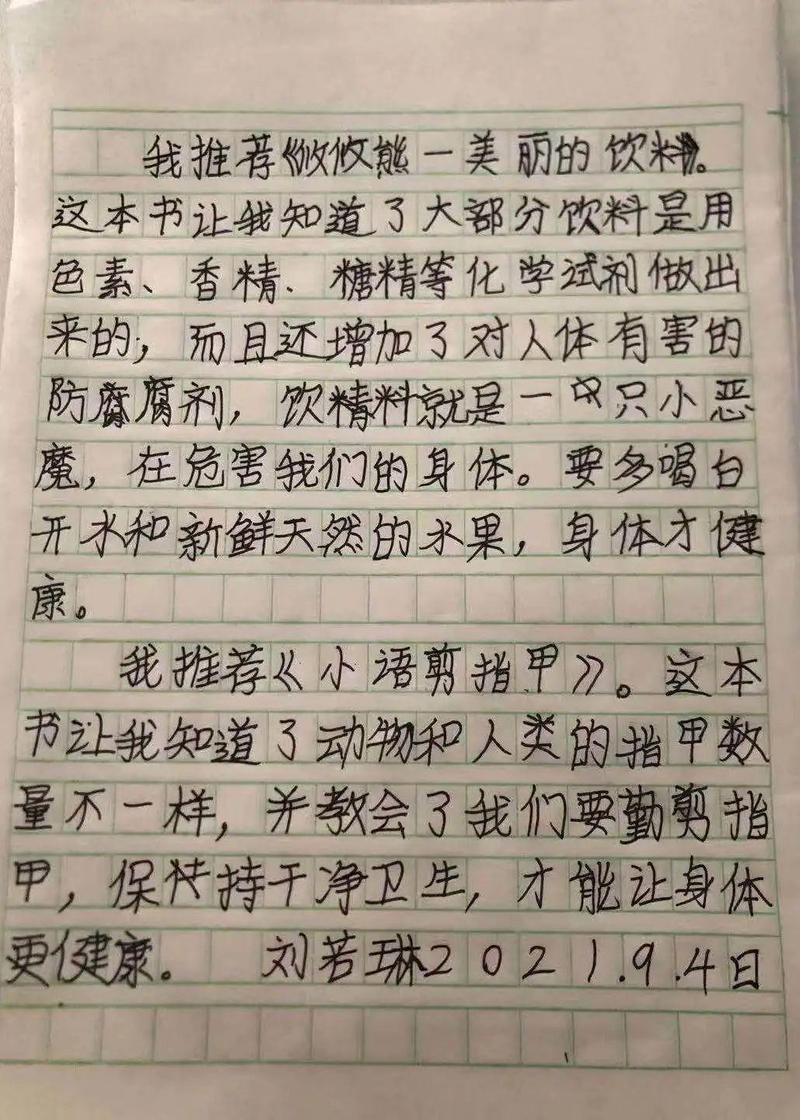 我推荐《攸攸熊一美丽的饮料》。
这本书让我知道了大部分饮料是用
色素、香精、糖精等化学试剂做出
来的，而且还增加了对人体有害的
防腐腐剂，饮精料就是一只小恶
魔，在危害我们的身体。要多喝白
开水和新鲜天然的水果，身体才健
康。
我推荐《小语剪指甲》。这本
书让我知道了动物和人类的指甲数
量不一样，并教会了我们要勤剪指
甲，保持持干净卫生，才能让身体
更健康。 刘若琳2021.9.4日